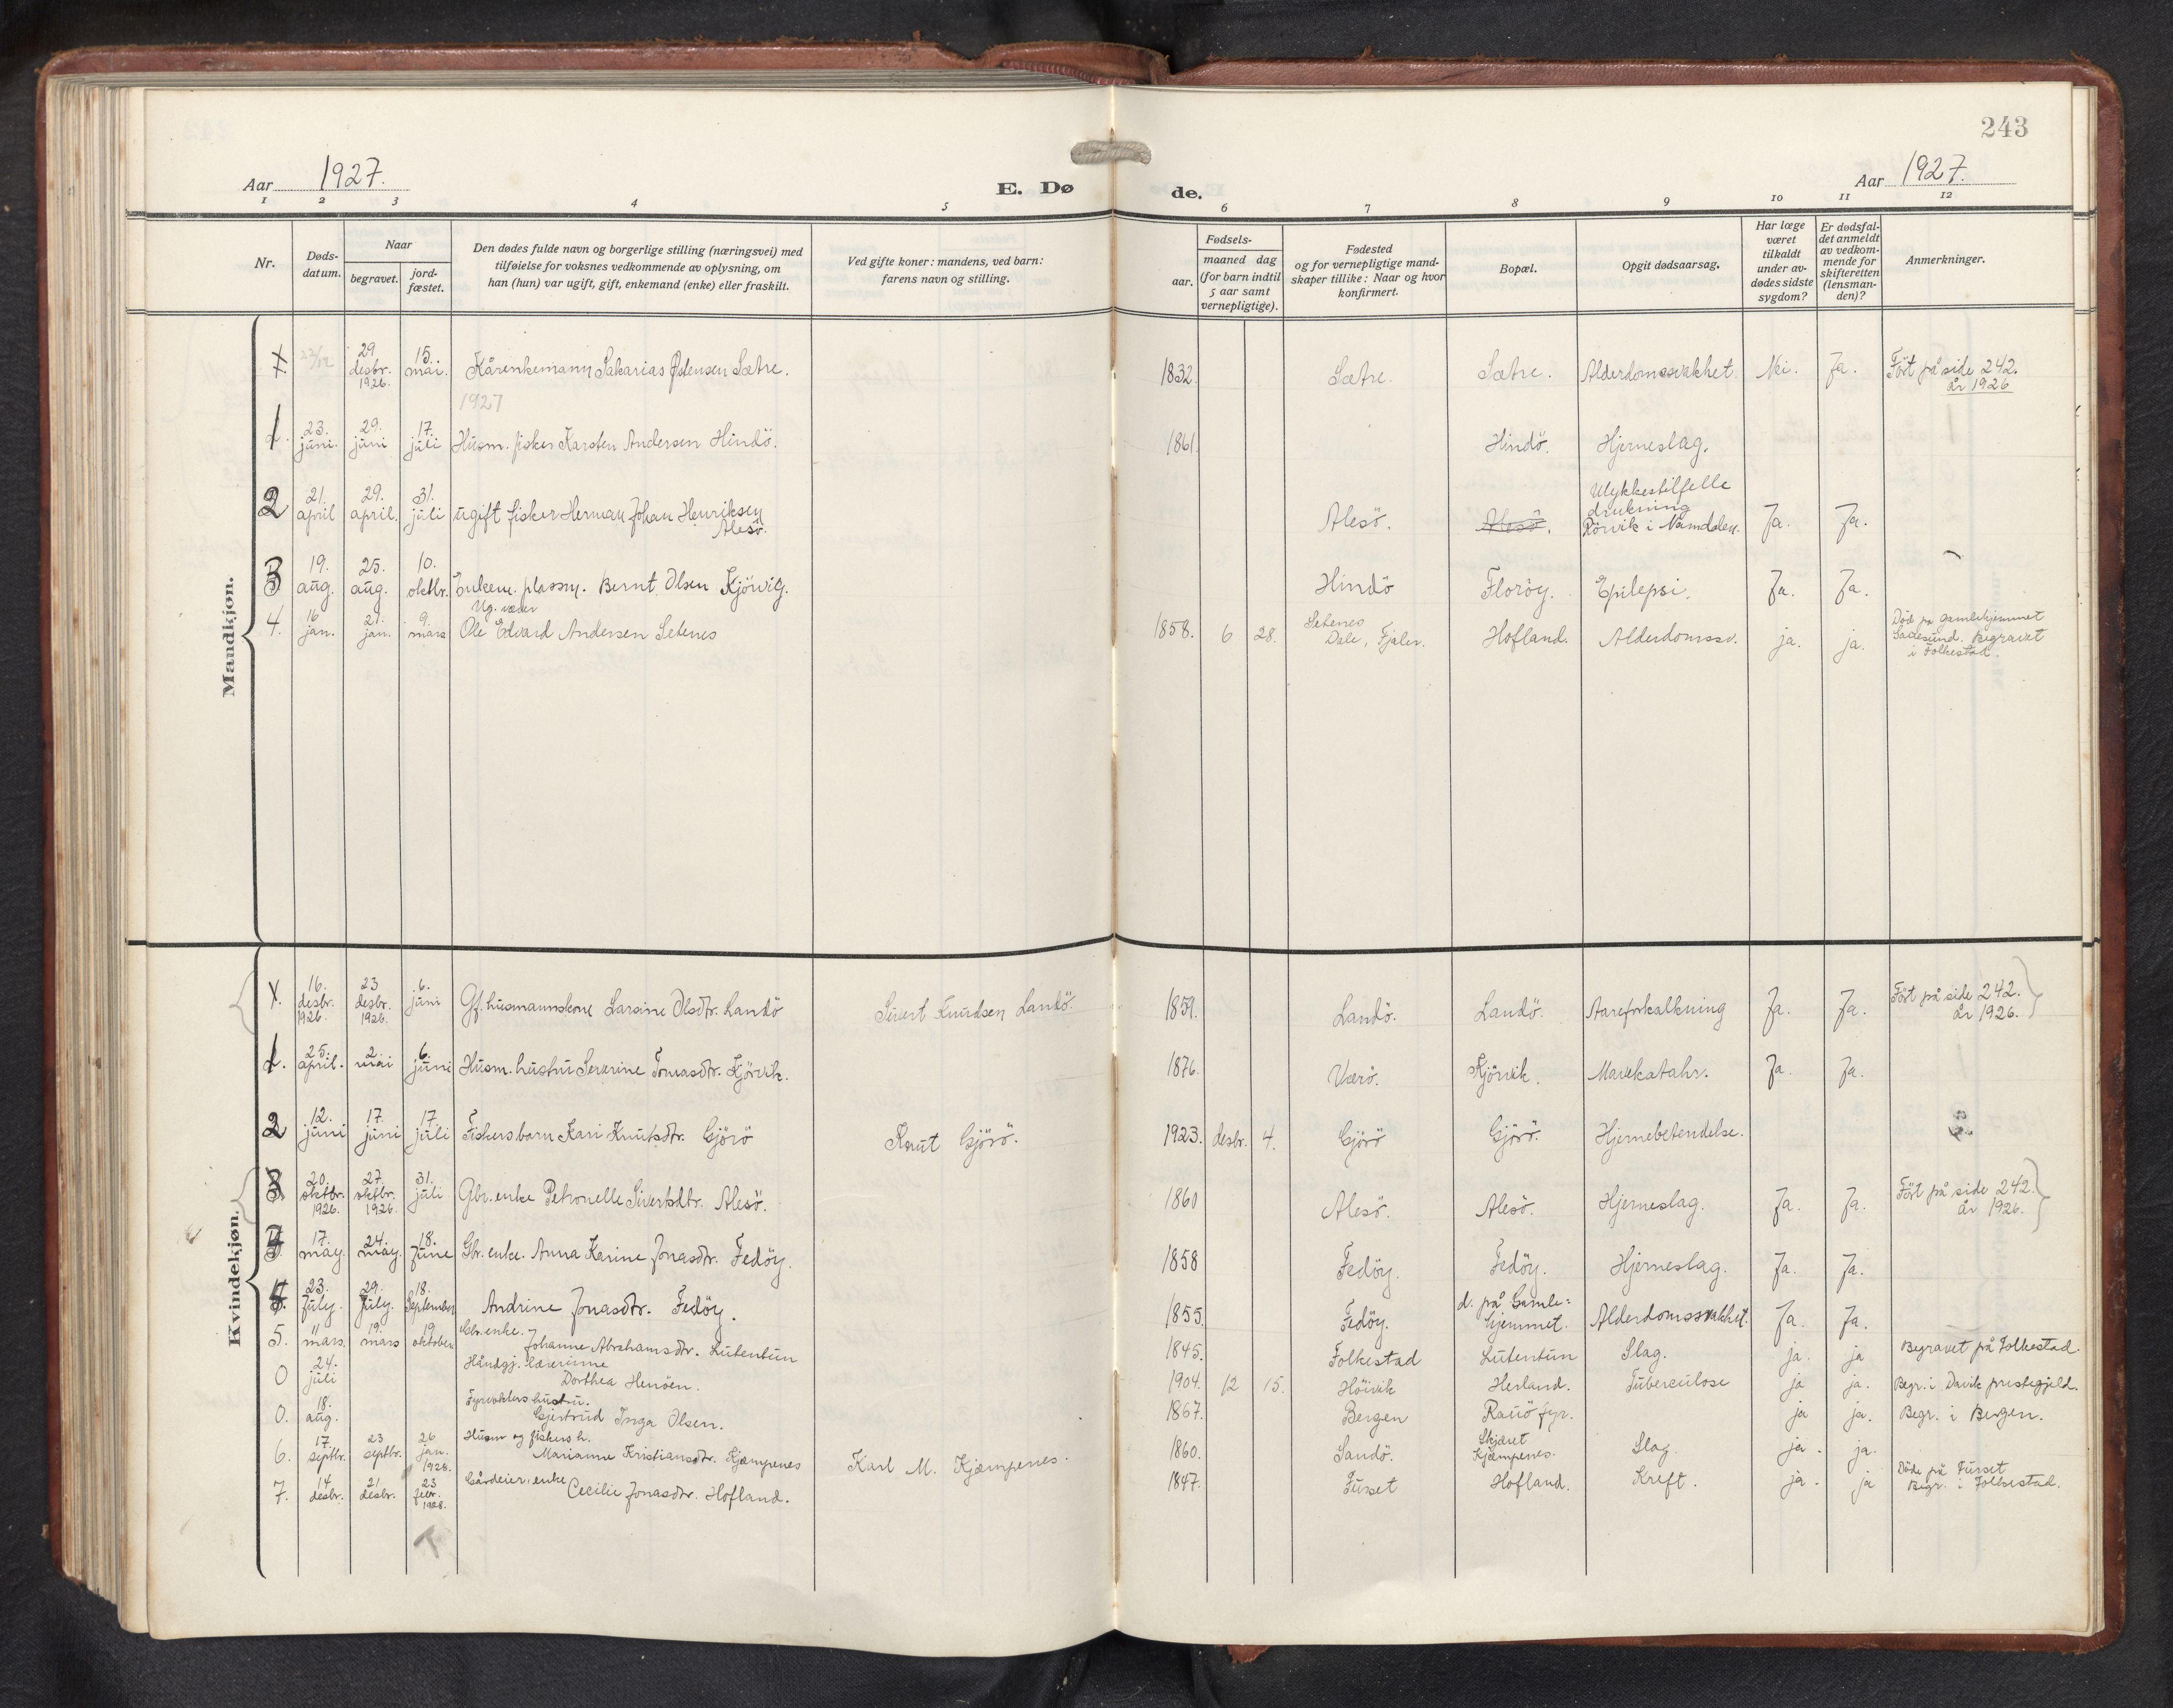 243
Aar 1927.
E. Dø de.
Aar 1927.
1 2 3 4 5 6 7 8 9 10 11 12
Nr.
Døds-
datum.
Naar
begravet.
jord-
fæstet.
Den dødes fulde navn og borgerlige stilling (næringsvei) med
tilføielse for voksnes vedkommende av oplysning, om
han (hun) var ugift, gift, enkemand (enke) eller fraskilt.
Ved gifte koner: mandens, ved barn:
farens navn og stilling.
Fødsels-
aar.
maaned dag
(for barn indtil
5 aar samt
vernepligtige).
Fødested
og for vernepligtige mand-
skaper tillike: Naar og hvor
konfirmert.
Bopæl.
Opgit dødsaarsag.
Har læge
været
tilkaldt
under av-
dødes sidste
sygdom?
Er dødsfal-
det anmeldt
av vedkom-
mende for
skifteretten
(lensman-
den)?
Anmerkninger.
Mandkjøn.
29 desbr. 1926. 15. mai. Kårenkemann Sakarias Sætre. 1832. Sætre. Sætre. Alderdomssvakhet Nei. Ja. Ført på side 242. år 1926
1927
1. 23. juni. 29. juni 17. juli Husm. fisker Karsten Andersen Hindö. 1861. Hindö. Hjerneslag.
2 21. april 29. april. 31. juli ugift fisker Herman Johan Henriksen Alesö. Alesö. Alesö. Ulykkestilfelle drukning Rörvik i Namdalen. Ja. Ja.
3 19. aug. 25. aug. 10. oktbr. Enkem. plassm. Bernt Olsen Kjörvig. Hindö Floröy. Epilepsi. Ja. Ja.
4. 16 jan. 21. jan. 9. mars Ole Edvard Andersen Setenes 1858. 6 28. Setenes Dale, Fjaler. Hofland. Alderdomssv. ja. ja. Død på gamlehjemmet Begravet i Folkestad.
Kvindekjøn.
16. desbr. 1926. 23 desbr. 1926. 6. juni Gf. husmannskone Larsine Olsdtr. Landö Sivert Knudsen Landö. 1859. Landö. Landö. Aareforkalkning Ja. Ja. Ført på side 242. år 1926.
1. 25. april. 2. mai 6. juni Husm. hustru Severine Tomasdtr. Kjörvik. 1876. Værö. Kjörvik. Mavekatahr. Ja. Ja.
2 12. juni 17. juni 17. juli Fiskersbarn Kari Knutsdtr. Gjörö Knut Gjörö. 1923. desbr. 4. Gjörö Gjörö. Hjernebetendelse.
3 20. oktbr. 1926. 27. oktbr. 1926. 31. juli Gbr. enke Petronelle Sivertsdtr. Alesö. 1860 Alesö. Alesö. Hjerneslag. Ja. Ja. Ført på side 242. år 1926.
3. 17. may. 24. may. 18. June Gbr. enke. Anna Karine Jonasdtr. Fedöy. 1858 Fedöy. Fedöy. Hjerneslag. Ja. Ja.
4 23. July. 29. July. 18. September Andrine Jonasdtr. Fedöy. 1855. Fedöy. d. på Gamle= hjemmet. Alderdomssvakhet. Ja. Ja.
5. 11 mars. 19. mars 19 oktober Gbr. enke. Johanne Abrahamsdtr. Lutentun 1845. Folkestad Lutentun Slag. ja. ja Begravet på Folkestad.
0 24. juli Håndgj. lærerinne Dorthea Henöen. 1904. 12 15. Höivik Herland. Tuberculose ja ja. Begr. i Davik prestegjeld.
0. 18. aug. Fyrvokters hustru. Gjertrud Inga Olsen. 1867. Bergen fyr. ja ja. Begr. i Bergen.
6. 17. septbr. 23 septbr. 26 jan. 1928. Husm og fiskers h. Marianne Kristiansdtr. Kjempenes Karl M. Kjempenes. 1860. Sandö. Skjæret Kjempenes. Slag. ja. ja.
7. 14 desbr. 21. desbr. 23 febr. 1928. Gårdeier enke Cecilie Jonasdtr. Hofland. 1847. Furset Hofland. Kreft. ja. ja Döde på Furset Begr. i Folkestad.